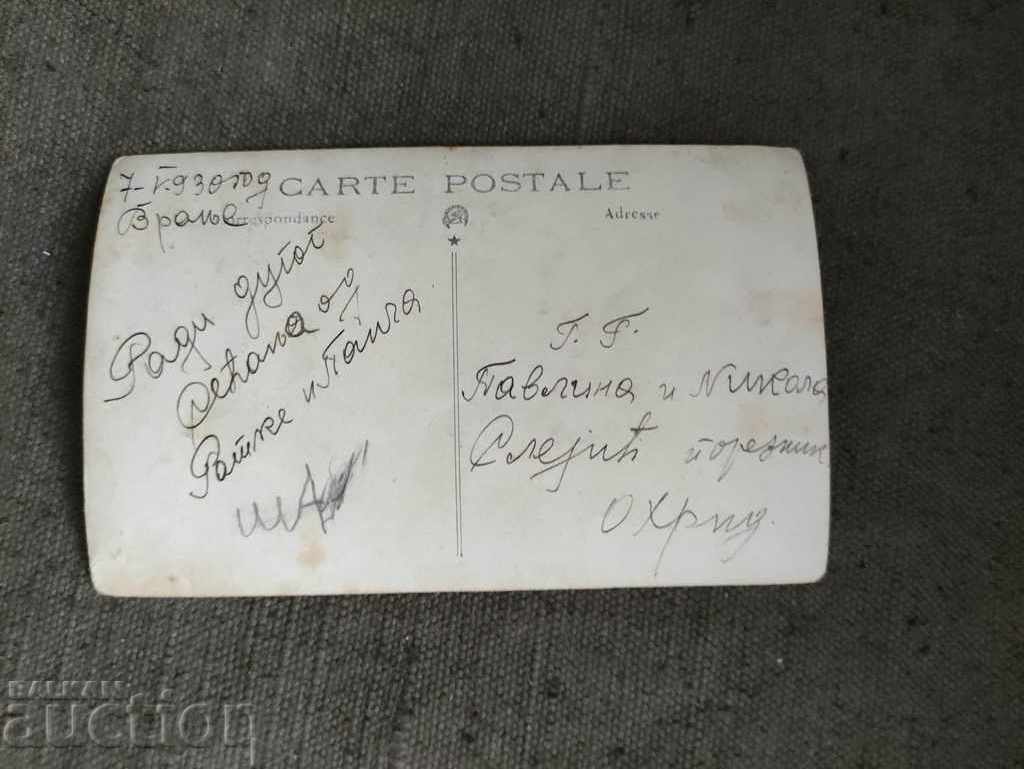 7-V-930 год
CARTE POSTALE
Врање
Correspondance
Adresse
Ради дугог
сећања од
Ратке и Панча
Г. Г.
Павлина и Никола
Слејић порезник
Охрид.
BALKAN
auction